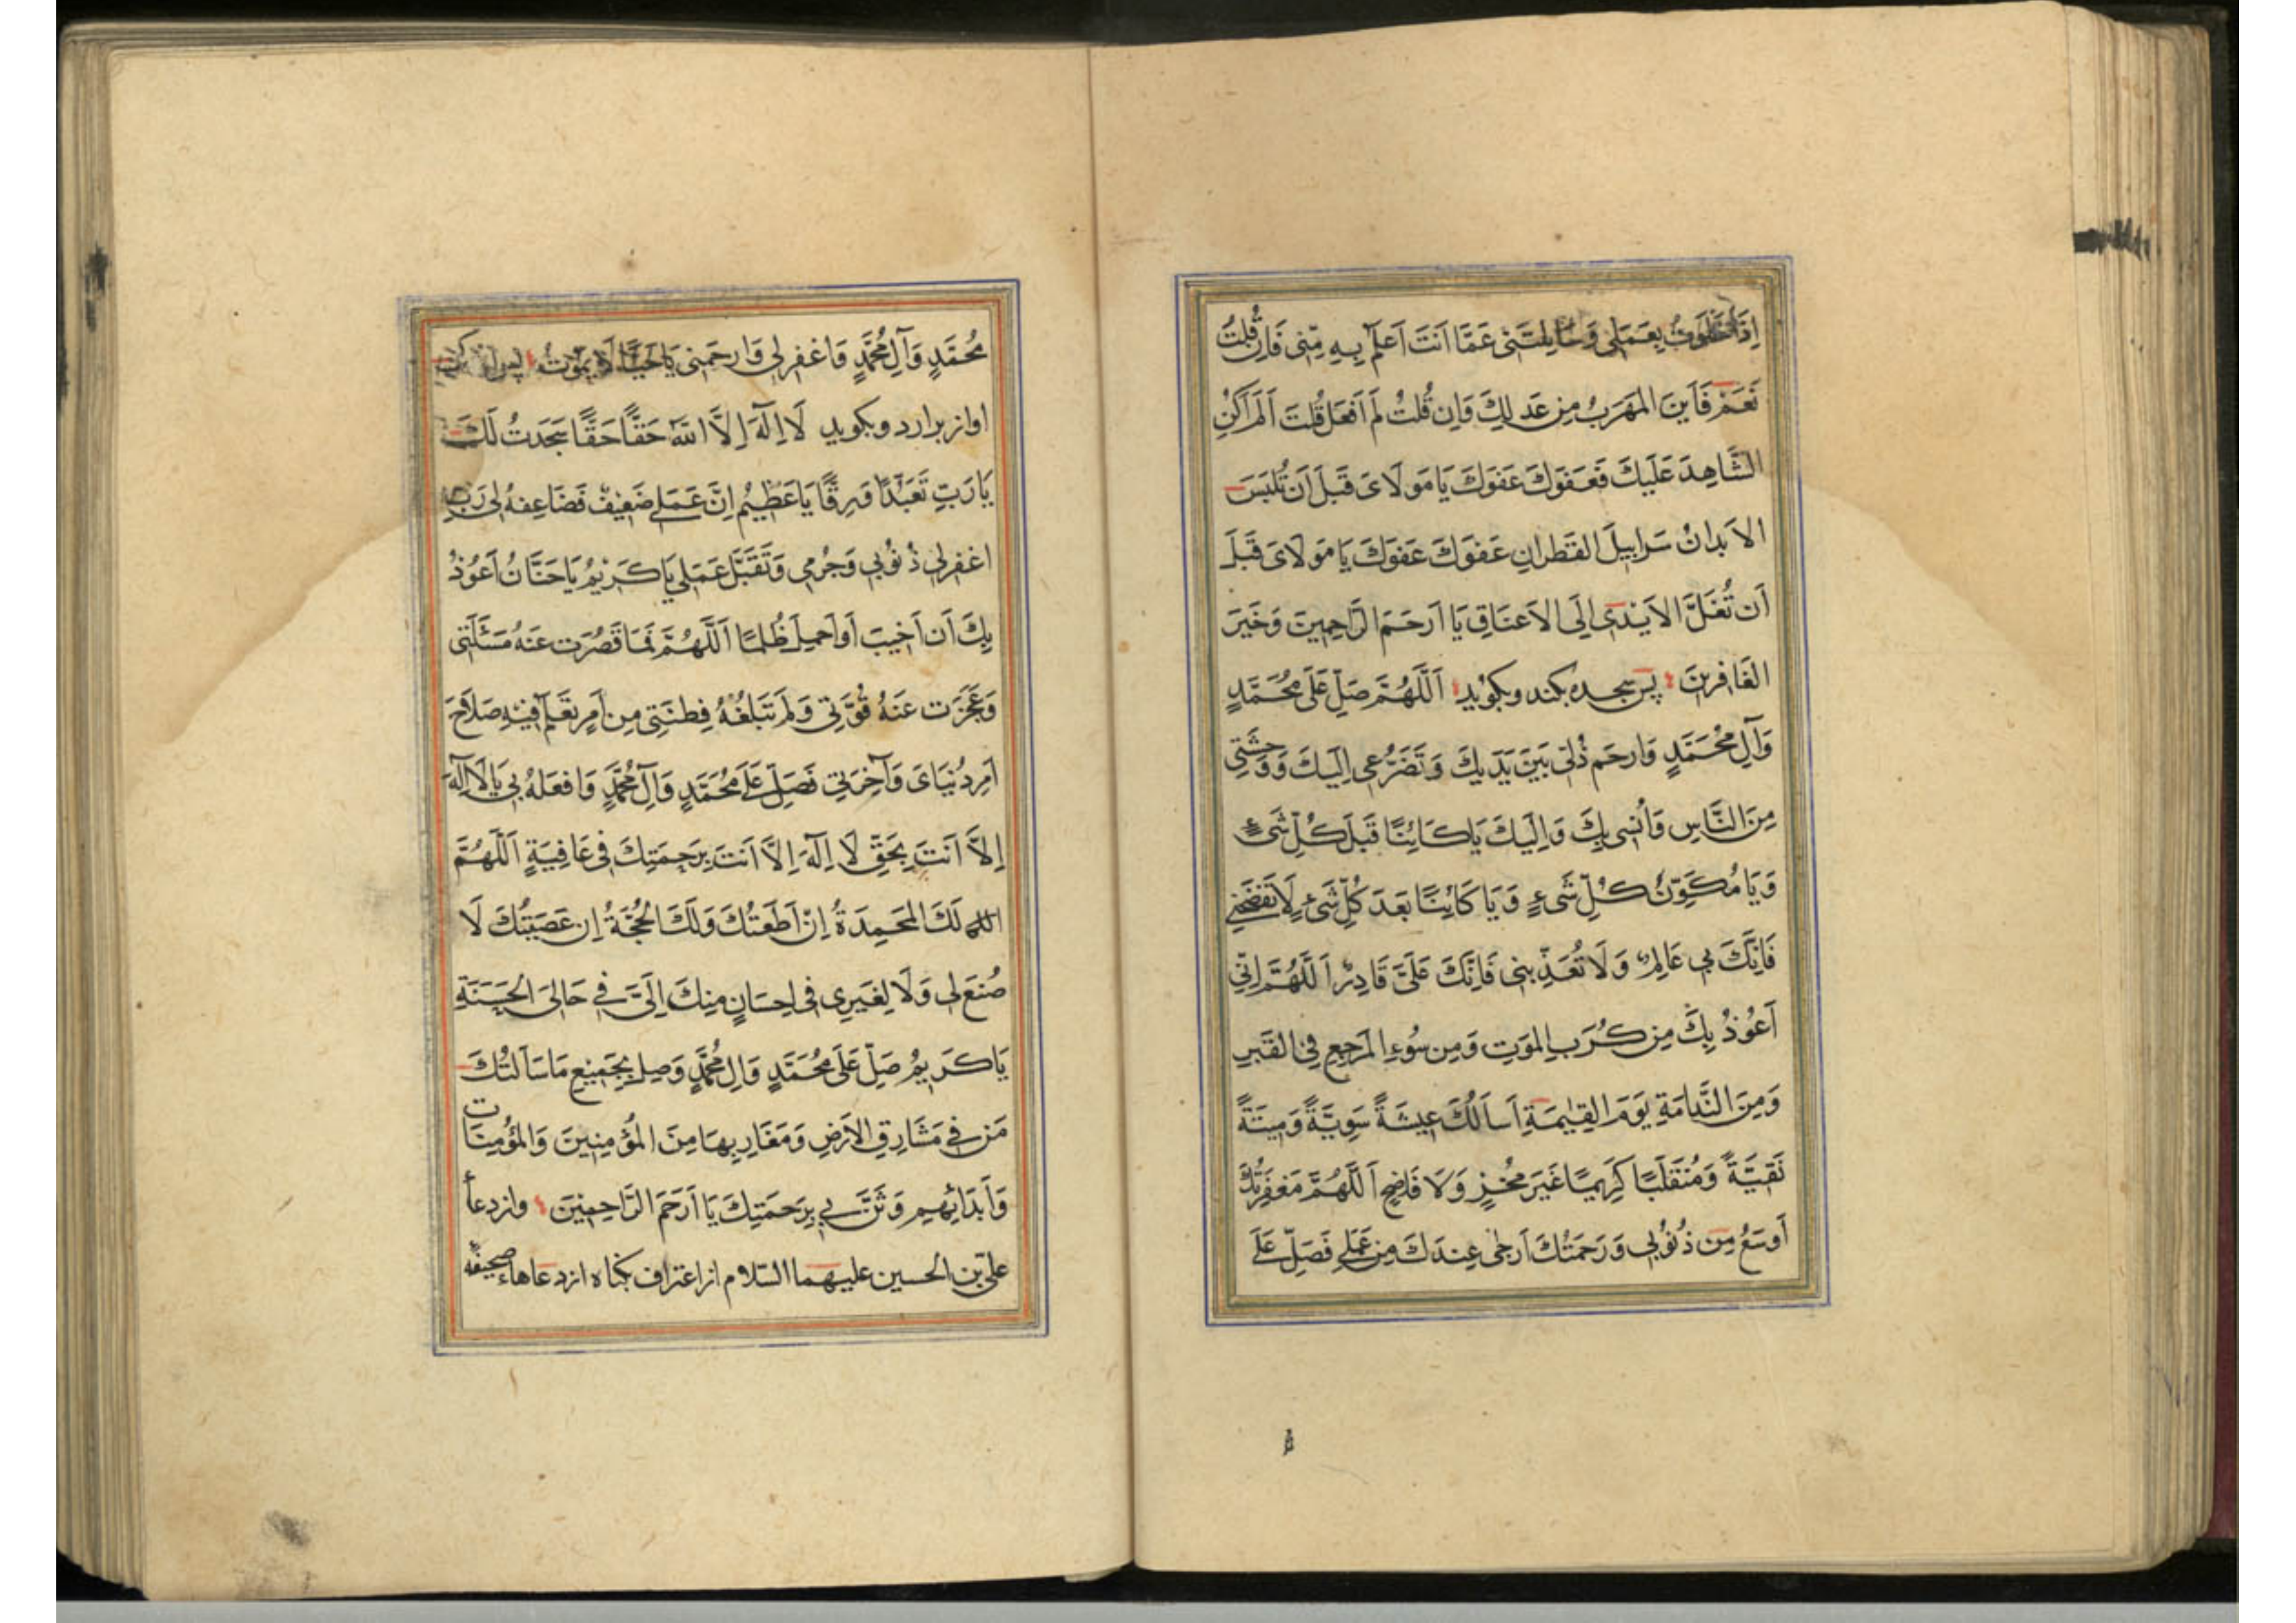 إِذَا خَلَوْتُ بِعَمَلِي وَسَايَلْتَنِي عَمَّا اَنْتَ اَعْلَمُ بِهِ مِنِّي فَاِنْ قُلْتُ
نَعَمْ فَاَيْنَ المَهْرَبُ مِنْ عَدْلِكَ وَاِنْ قُلْتُ لَمْ اَفْعَلْ قُلْتَ اَلَمْ اَكُنِ
الشَّاهِدَ عَلَيْكَ فَعَفْوَكَ عَفْوَكَ يَا مَوْلَايَ قَبْلَ اَنْ تُلْبَسَ
الاَبْدَانُ سَرَابِيلَ القَطْرَانِ عَفْوَكَ عَفْوَكَ يَا مَوْلَايَ قَبْلَ
اَنْ تُغَلَّ الاَيْدِي اِلَى الاَعْنَاقِ يَا اَرْحَمَ الرَّاحِمِينَ وَخَيْرَ
الغَافِرِينَ پس سجده بكند وبكويد اَللَّهُمَّ صَلِّ عَلَى مُحَمَّدٍ
وَآلِ مُحَمَّدٍ وَارْحَمْ ذُلِّي بَيْنَ يَدَيْكَ وَتَضَرُّعِي اِلَيْكَ وَوَحْشَتِي
مِنَ النَّاسِ وَاُنْسِي بِكَ وَاِلَيْكَ يَا كَائِنًا قَبْلَ كُلِّ شَيْءٍ
وَيَا مُكَوِّنَ كُلِّ شَيْءٍ وَيَا كَائِنًا بَعْدَ كُلِّ شَيْءٍ لَا تَفْضَحْنِي
فَاِنَّكَ بِي عَالِمٌ وَلَا تُعَذِّبْنِي فَاِنَّكَ عَلَيَّ قَادِرٌ اَللَّهُمَّ اِنِّي
اَعُوذُ بِكَ مِنْ كُرَبِ المَوْتِ وَمِنْ سُوءِ المَرْجِعِ فِي القَبْرِ
وَمِنَ النَّدَامَةِ يَوْمَ القِيٰمَةِ اَسْاَلُكَ عِيشَةً سَوِيَّةً وَمِيتَةً
نَقِيَّةً وَمُنْقَلَبًا كَرِيمًا غَيْرَ مُخْزٍ وَلَا فَاضِحٍ اَللَّهُمَّ مَغْفِرَتُكَ
اَوْسَعُ مِنْ ذُنُوبِي وَرَحْمَتُكَ اَرْجَى عِنْدَكَ مِنْ عَمَلِي فَصَلِّ عَلَى
مُحَمَّدٍ وَآلِ مُحَمَّدٍ وَاغْفِرْ لِي وَارْحَمْنِي يَا حَيًّا لَا يَمُوتُ پس
اواز برارد وبكويد لَا اِلٰهَ اِلَّا اللّٰهُ حَقًّا حَقًّا سَجَدْتُ لَكَ
يَا رَبِّ تَعَبُّدًا وَرِقًّا يَا عَظِيمُ اِنَّ عَمَلِي ضَعِيفٌ فَضَاعِفْهُ لِي رَبِّ
اغْفِرْ لِي ذُنُوبِي وَجُرْمِي وَتَقَبَّلْ عَمَلِي يَا كَرِيمُ يَا حَنَّانُ اَعُوذُ
بِكَ اَنْ اَخِيبَ اَوْ اَحْمِلَ ظُلْمًا اَللَّهُمَّ فَمَا قَصُرَتْ عَنْهُ مَسْئَلَتِي
وَعَجَزَتْ عَنْهُ قُوَّتِي وَلَمْ تَبْلُغْهُ فِطْنَتِي مِنْ اَمْرٍ تَعْلَمُ فِيْهِ صَلَاحَ
اَمْرِ دُنْيَايَ وَآخِرَتِي فَصَلِّ عَلَى مُحَمَّدٍ وَآلِ مُحَمَّدٍ وَافْعَلْهُ بِي يَا لَا اِلٰهَ
اِلَّا اَنْتَ بِحَقِّ لَا اِلٰهَ اِلَّا اَنْتَ بِرَحْمَتِكَ فِي عَافِيَةٍ اَللَّهُمَّ
لَكَ المَحْمِدَةُ اِنْ اَطَعْتُكَ وَلَكَ الحُجَّةُ اِنْ عَصَيْتُكَ لَا
صُنْعَ لِي وَلَا لِغَيْرِي فِي اِحْسَانٍ مِنْكَ اِلَيَّ فِي حَالِيَ الحَسَنَةِ
يَا كَرِيمُ صَلِّ عَلَى مُحَمَّدٍ وَالِ مُحَمَّدٍ وَصِلْ بِجَمِيعِ مَا سَاَلْتُكَ
مَنْ فِي مَشَارِقِ الاَرْضِ وَمَغَارِبِهَا مِنَ المُؤْمِنِينَ وَالمُؤْمِنَات
وَابْدَاْ بِهِمْ وَثَنِّ بِي بِرَحْمَتِكَ يَا اَرْحَمَ الرَّاحِمِينَ وازدعاء
علي بن الحسين عليهما السّلام از اعتراف بكناه ازدعاهاء صحيفه